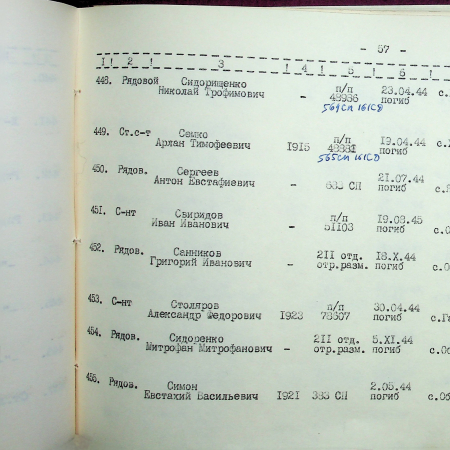 - 57 -
I ! 2 ! 3 ! 4 ! 5 ! 6 !
448. Рядовой Сидорищенко п/п 23.04.44 с.
Николай Трофимович - 48936 погиб
569СП 161СД
449. Ст.с-т Семко п/п 19.04.44 с.
Арлан Тимофеевич 1915 погиб
565СП 161СД
450. Рядов. Сергеев 21.07.44
Антон Евстафиевич - СП погиб
451. С-нт Свиридов п/п 19.03.45
Иван Иванович - 51103 погиб с.
452. Рядов. Санников 211 отд. 18.X.44
Григорий Иванович - отр.разм. погиб с.
453. С-нт Столяров п/п 30.04.44
Александр Федорович 1923 78607 погиб с.Г
454. Рядов. Сидоренко 211 отд. 5.XI.44
Митрофан Митрофанович - отр.разм. погиб с.О
455. Рядов. Симон 2.05.44
Евстахий Васильевич 1921 383 СП погиб с.Об